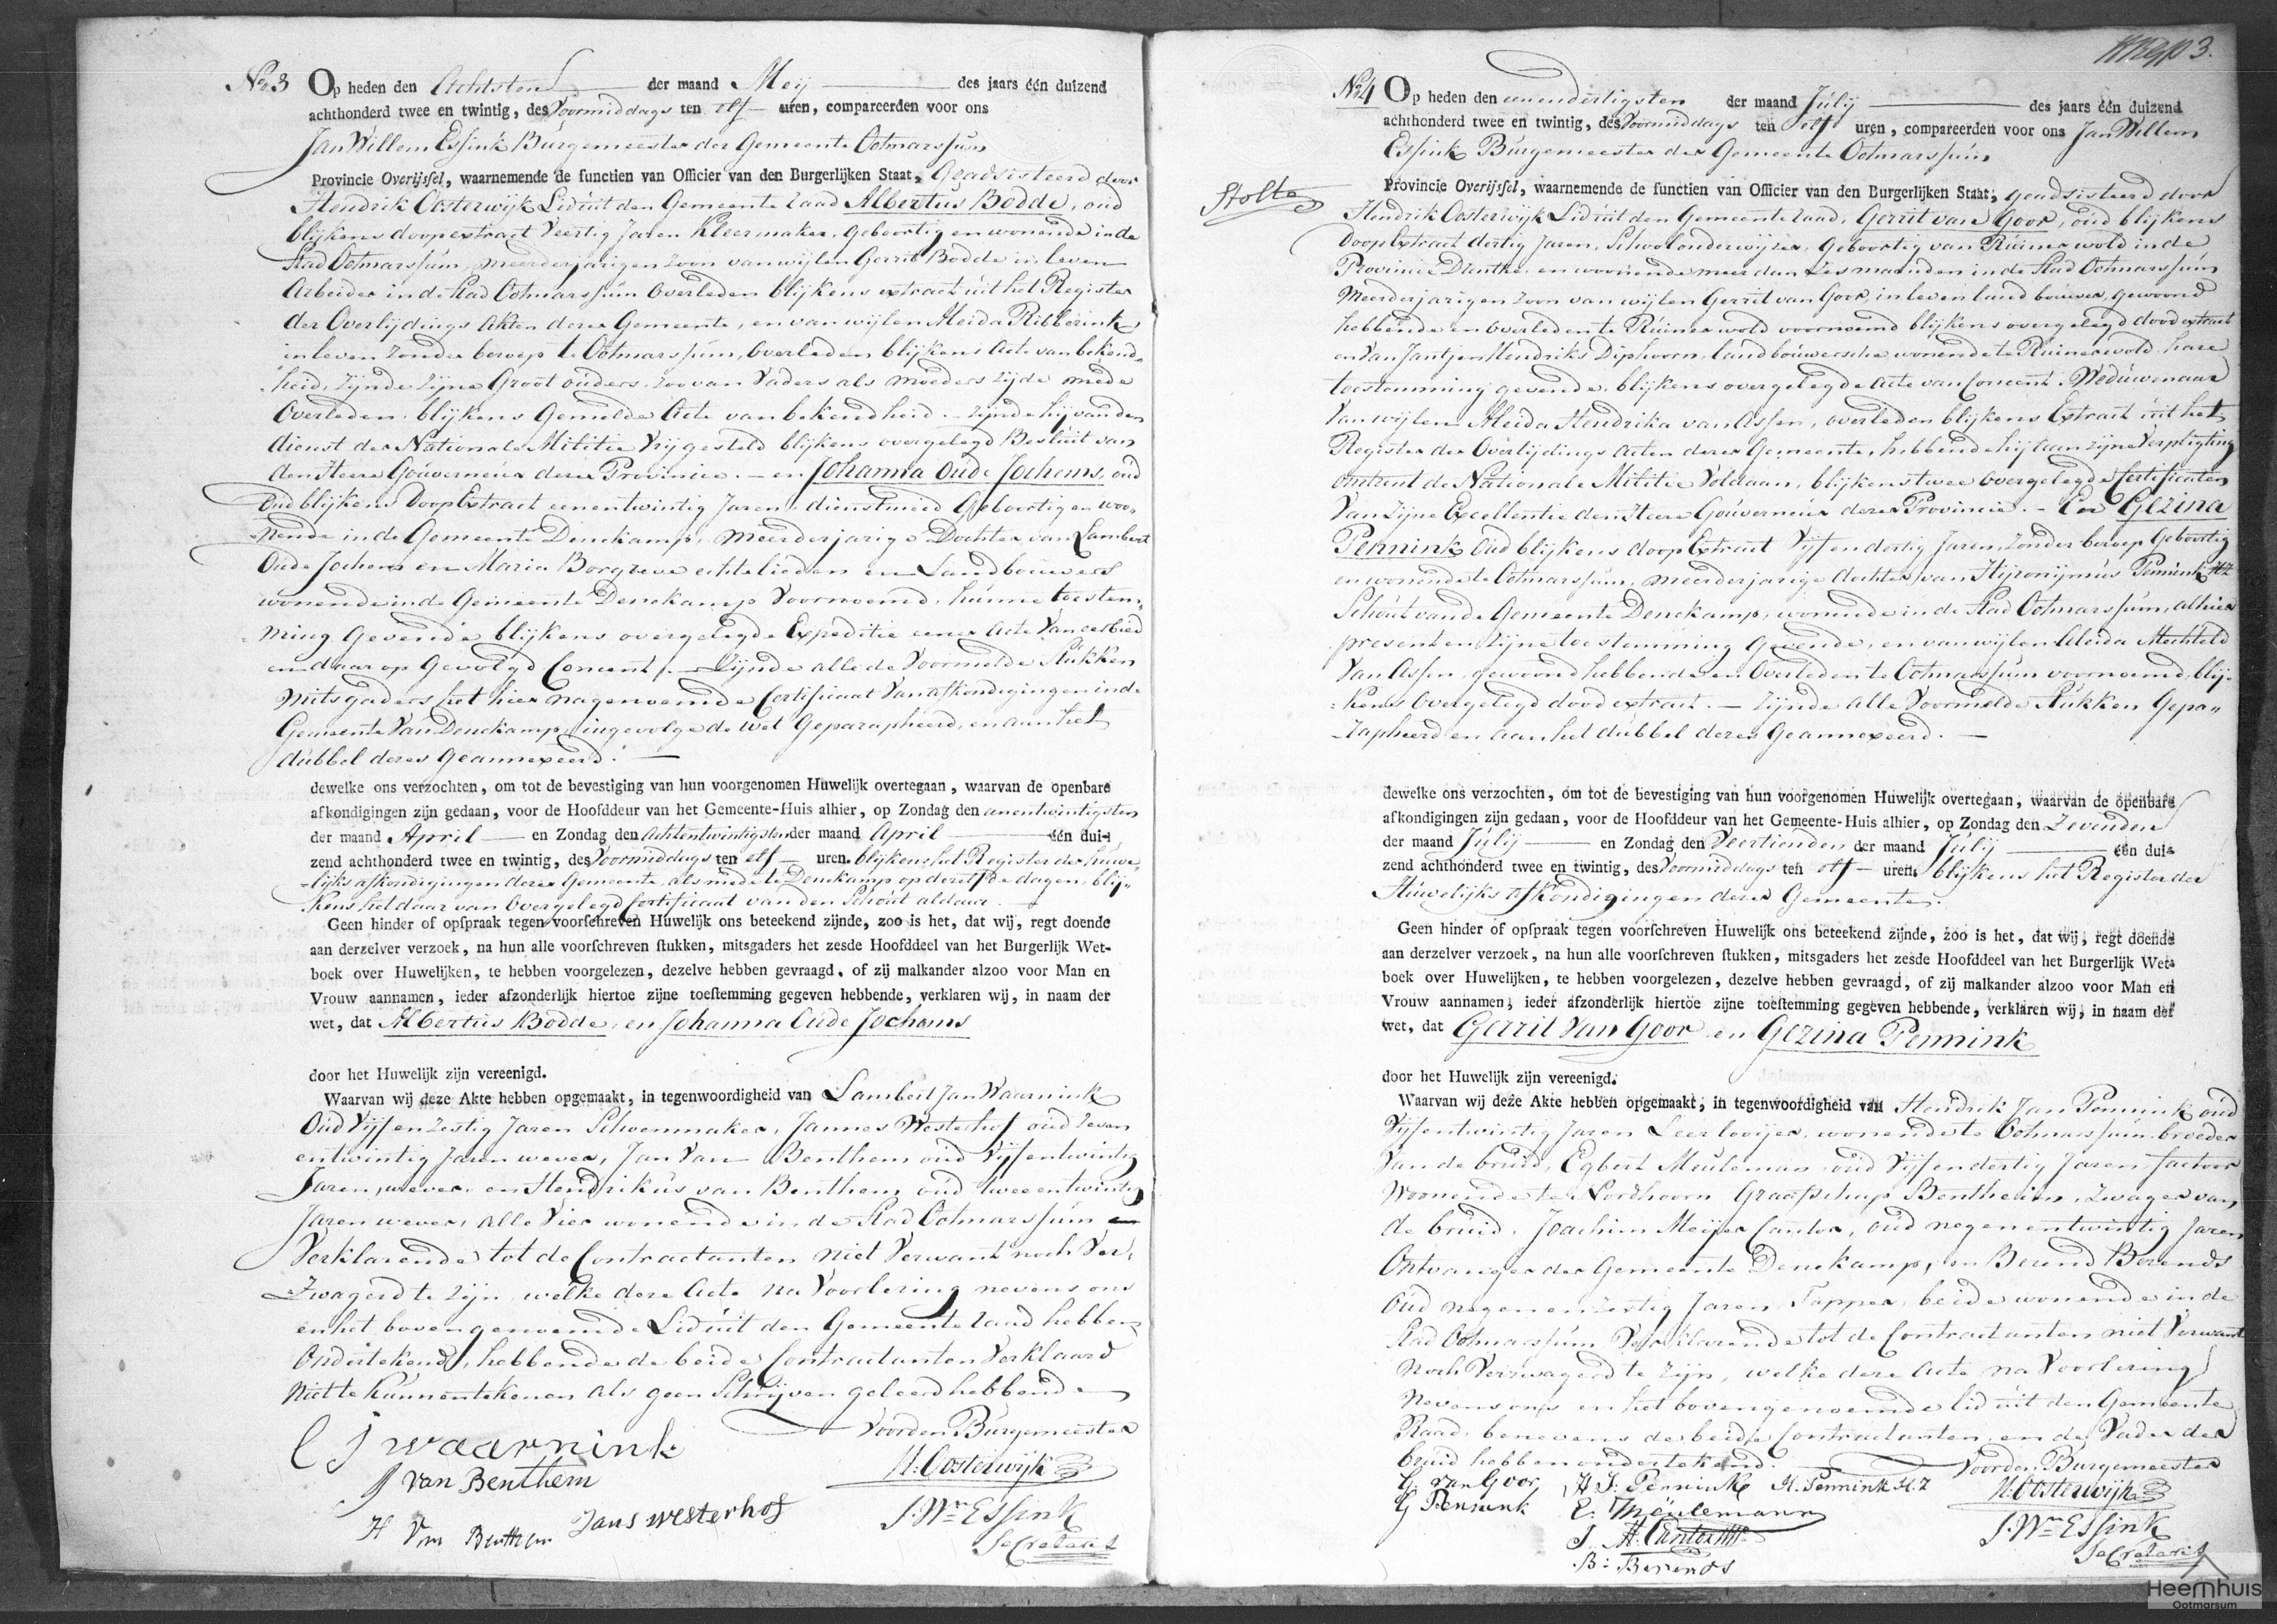 No. 3 Op heden den Achtsten der maand Meij des jaars één duizend
achthonderd twee en twintig, des Voormiddags ten elf uren, compareerden voor ons
Jan Willem Essink Burgemeester der Gemeente Ootmarssum
Provincie Overijssel, waarnemende de functien van Officier van den Burgerlijken Staat, Geadsisteerd door
Hendrik Oosterwijk Lid uit den Gemeente raad Albertus Bodde, oud
blijkens doopextract Veertig Jaren Kleermaker, geboortig en wonende in de
Stad Ootmarssum, meerderjarigen zoon van wijlen Gerrit Bodde in leven
Arbeider in de Stad Ootmarssum Overleden blijkens extract uit het Register
der Overlijdings Akten dezer Gemeente, en van wijlen Aleida Ribberink
in leven zonder beroep te Ootmarssum, Overleden blijkens Acte van bekend-
heid, zijnde zijne Groot ouders, zoo van Vaders als moeders zijde mede
Overleden blijkens Gemelde Acte van bekendheid. zijnde hij van den
dienst der Nationale Militie Vrij gesteld blijkens overgelegd Besluit van
den Heere Gouverneur dezer Provincie. - en Johanna Oude Jochems, oud
Oud blijkens DoopExtract eenentwintig Jaren, dienstmeid Geboortig en woo-
nende in de Gemeente Denekamp, meerderjarige Dochter van Lambert
Oude Jochems en Maria Borgreve echtelieden en Landbouwers
wonende in de Gemeente Denekamp Voornoemd, hunne toestem-
ming Gevende blijkens overgelegde Expeditie eener Acte Van eerbied
en daar op Gevolgd Consent. - Zijnde alle de Voormelde Stukken
mitsgaders het hier nagenoemde Certificaat Van afkondigingen in de
Gemeente Van Denekamp, ingevolge de wet Geparapheerd, en aan het
dubbel dezes Geannexeerd. -
dewelke ons verzochten, om tot de bevestiging van hun voorgenomen Huwelijk overtegaan, waarvan de openbare
afkondigingen zijn gedaan, voor de Hoofddeur van het Gemeente-Huis alhier, op Zondag den eenentwintigsten
der maand April en Zondag den Achtentwintigsten der maand April één dui-
zend achthonderd twee en twintig, des Voormiddags ten elf uren. blijkens het Register der huwe-
lijks afkondigingen dezer Gemeente, als mede te Denekamp op dezelfde dagen, blij-
kens het daar van Overgelegd Certificaat van den Schout aldaar. -
Geen hinder of opspraak tegen voorschreven Huwelijk ons beteekend zijnde, zoo is het, dat wij, regt doende
aan derzelver verzoek, na hun alle voorschreven stukken, mitsgaders het zesde Hoofddeel van het Burgerlijk Wet-
boek over Huwelijken, te hebben voorgelezen, dezelve hebben gevraagd, of zij malkander alzoo voor Man en
Vrouw aannamen, ieder afzonderlijk hiertoe zijne toestemming gegeven hebbende, verklaren wij, in naam der
wet, dat Albertus Bodde, en Johanna Oude Jochems
door het Huwelijk zijn vereenigd.
Waarvan wij deze Akte hebben opgemaakt, in tegenwoordigheid van Lambert Jan Waarnink
Oud Vijf en zestig Jaren Schoenmaker, Jannes Westerhof oud zeven
entwintig Jaren wever, Jan Van Benthem oud Vijfentwintig
Jaren, wever en Hendrikus van Benthem oud tweeentwintig
Jaren wever, alle Vier wonende in de Stad Ootmarssum
Verklarende tot de Contractanten niet Verwant noch Ver-
zwagerd te zijn, welke deze Acte na Voorlezing nevens ons
en het bovengenoemde Lid uit den Gemeente raad hebben
Ondertekend, hebbende de beide Contractanten Verklaard
niet te kunnen tekenen als geen Schrijven geleerd hebbende
Voor den Burgemeester
L J waarnink
H. Oosterwijk
J van Benthem
Jans westerhof
J. Wm Essink
Secretaris
H Van Benthem
No. 4 Op heden den eenendertigsten der maand Julij des jaars één duizend
achthonderd twee en twintig, des Voormiddags ten elf uren, compareerden voor ons Jan Willem
Essink Burgemeester der Gemeente Ootmarssum
Provincie Overijssel, waarnemende de functien van Officier van den Burgerlijken Staat, geadsisteerd door
Stolte
Hendrik Oosterwijk Lid uit den Gemeente raad, Gerrit van Goor, oud blijkens
DoopExtract dertig Jaren, Schoolonderwijzer, Geboortig van Ruinerwold in de
Provincie Drenthe, en woonende meer dan zes maanden in de Stad Ootmarssum
meerderjarigen zoon van wijlen Gerrit van Goor, in leven land bouwer, gewoond
hebbende en Overleden te Ruinerwold voornoemd blijkens overgelegd dood extract
en Van Jantjen Hendriks Diphoorn, landbouwersche wonende te Ruinerwold, hare
toestemming gevende, blijkens overgelegde Acte van Consent. Weduwenaar
Van wijlen Aleida Hendrika van Assen, overleden blijkens Extract uit het
Register der Overlijdings Acten dezer Gemeente, hebbende hij aan zijne Verpligting
omtrent de Nationale Militie Voldaan, blijkens twee overgelegde Certificaten
Van zijne Excellentie den Heere Gouverneur dezer Provincie. - En Gezina
Pennink Oud blijkens doopExtract Vijfendertig Jaren, zonder beroep Geboortig
en wonende te Ootmarssum, meerderjarige dochter van Hijronijmus Pennink HZ
Schout van de Gemeente Denekamp, wonende in de Stad Ootmarssum, alhier
present en zijne toestemming Gevende, en van wijlen Aleida Mechteld
Van Assen, gewoond hebbende en Overleden te Ootmarssum voornoemd, blij-
kens Overgelegd dood extract. - Zijnde alle Voormelde Stukken Gepa-
rapheerd en aan het dubbel dezes Geannexeerd. -
dewelke ons verzochten, om tot de bevestiging van hun voorgenomen Huwelijk overtegaan, waarvan de openbare
afkondigingen zijn gedaan, voor de Hoofddeur van het Gemeente-Huis alhier, op Zondag den Zevenden
der maand Julij en Zondag den Veertienden der maand Julij één dui-
zend achthonderd twee en twintig, des Voormiddags ten elf uren. blijkens het Register der
Huwelijks afkondigingen dezer Gemeente.
Geen hinder of opspraak tegen voorschreven Huwelijk ons beteekend zijnde, zoo is het, dat wij, regt doende
aan derzelver verzoek, na hun alle voorschreven stukken, mitsgaders het zesde Hoofddeel van het Burgerlijk Wet-
boek over Huwelijken, te hebben voorgelezen, dezelve hebben gevraagd, of zij malkander alzoo voor Man en
Vrouw aannamen, ieder afzonderlijk hiertoe zijne toestemming gegeven hebbende, verklaren wij, in naam der
wet, dat Gerrit Van Goor en Gezina Pennink
door het Huwelijk zijn vereenigd.
Waarvan wij deze Akte hebben opgemaakt, in tegenwoordigheid van Hendrik Jan Pennink oud
Vijfentwintig Jaren Leerlooijer, wonende te Ootmarssum broeder
Van de bruid, Egbert Meuleman, oud Vijfendertig Jaren factoor
Woonende te Nordhoorn Graafschap Bentheim, Zwager van
de bruid, Joachim Meijer Cantor, oud negenentwintig Jaren
Ontvanger der Gemeente Denekamp, en Berend Berends
Oud negenenzestig Jaren, Tapper, beide wonende in de
Stad Ootmarssum Verklarende tot de Contractanten niet Verwant
noch Verzwagerd te zijn, welke deze Acte na Voorlezing
Nevens ons en het bovengenoemde lid uit den Gemeente
Raad, benevens de beide Contractanten, en de Vader der
bruid hebben ondertekend.
Voor den Burgemeester
G. van Goor H. J. Pennink H. Pennink HZ
H. Oosterwijk
G Pennink E. Meulemann
J. Wm Essink
Secretaris
B: Berends
Heemhuis
Ootmarsum